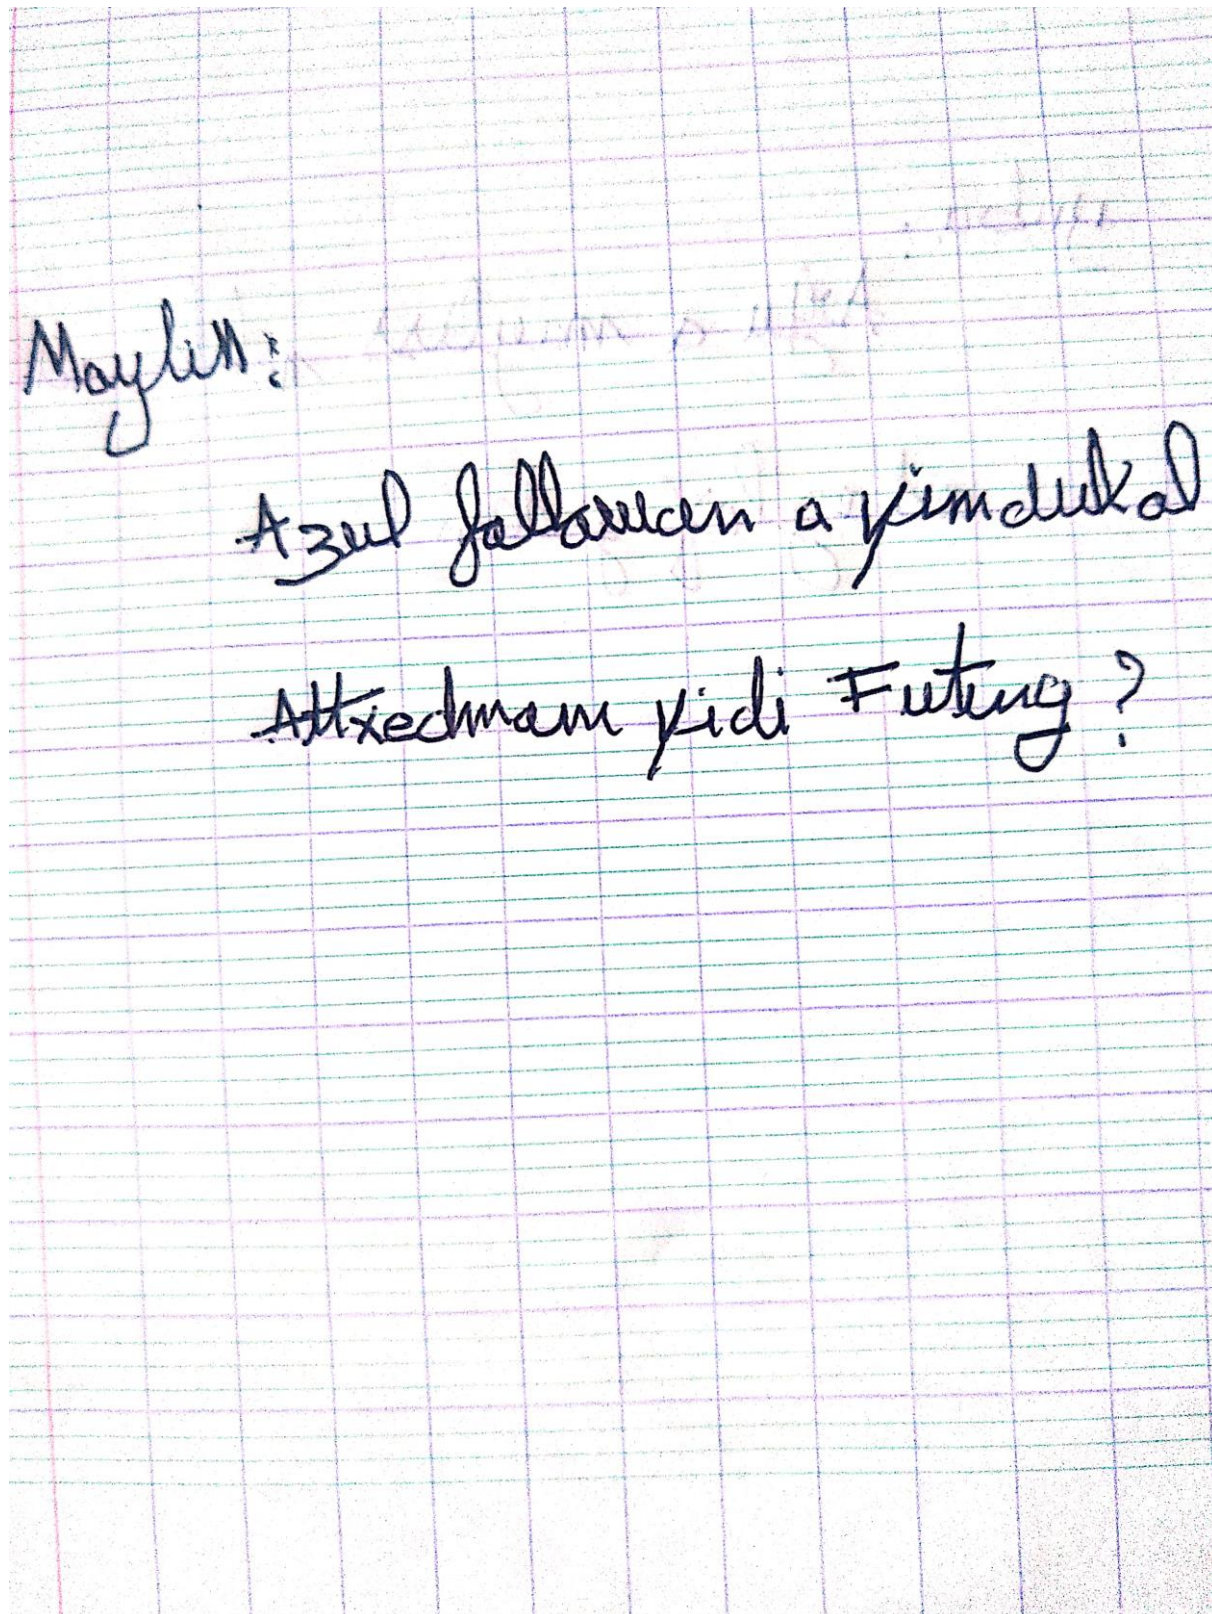 Maylin:
Azul fallawen a yimdukal
Attxedmam yidi Futung?